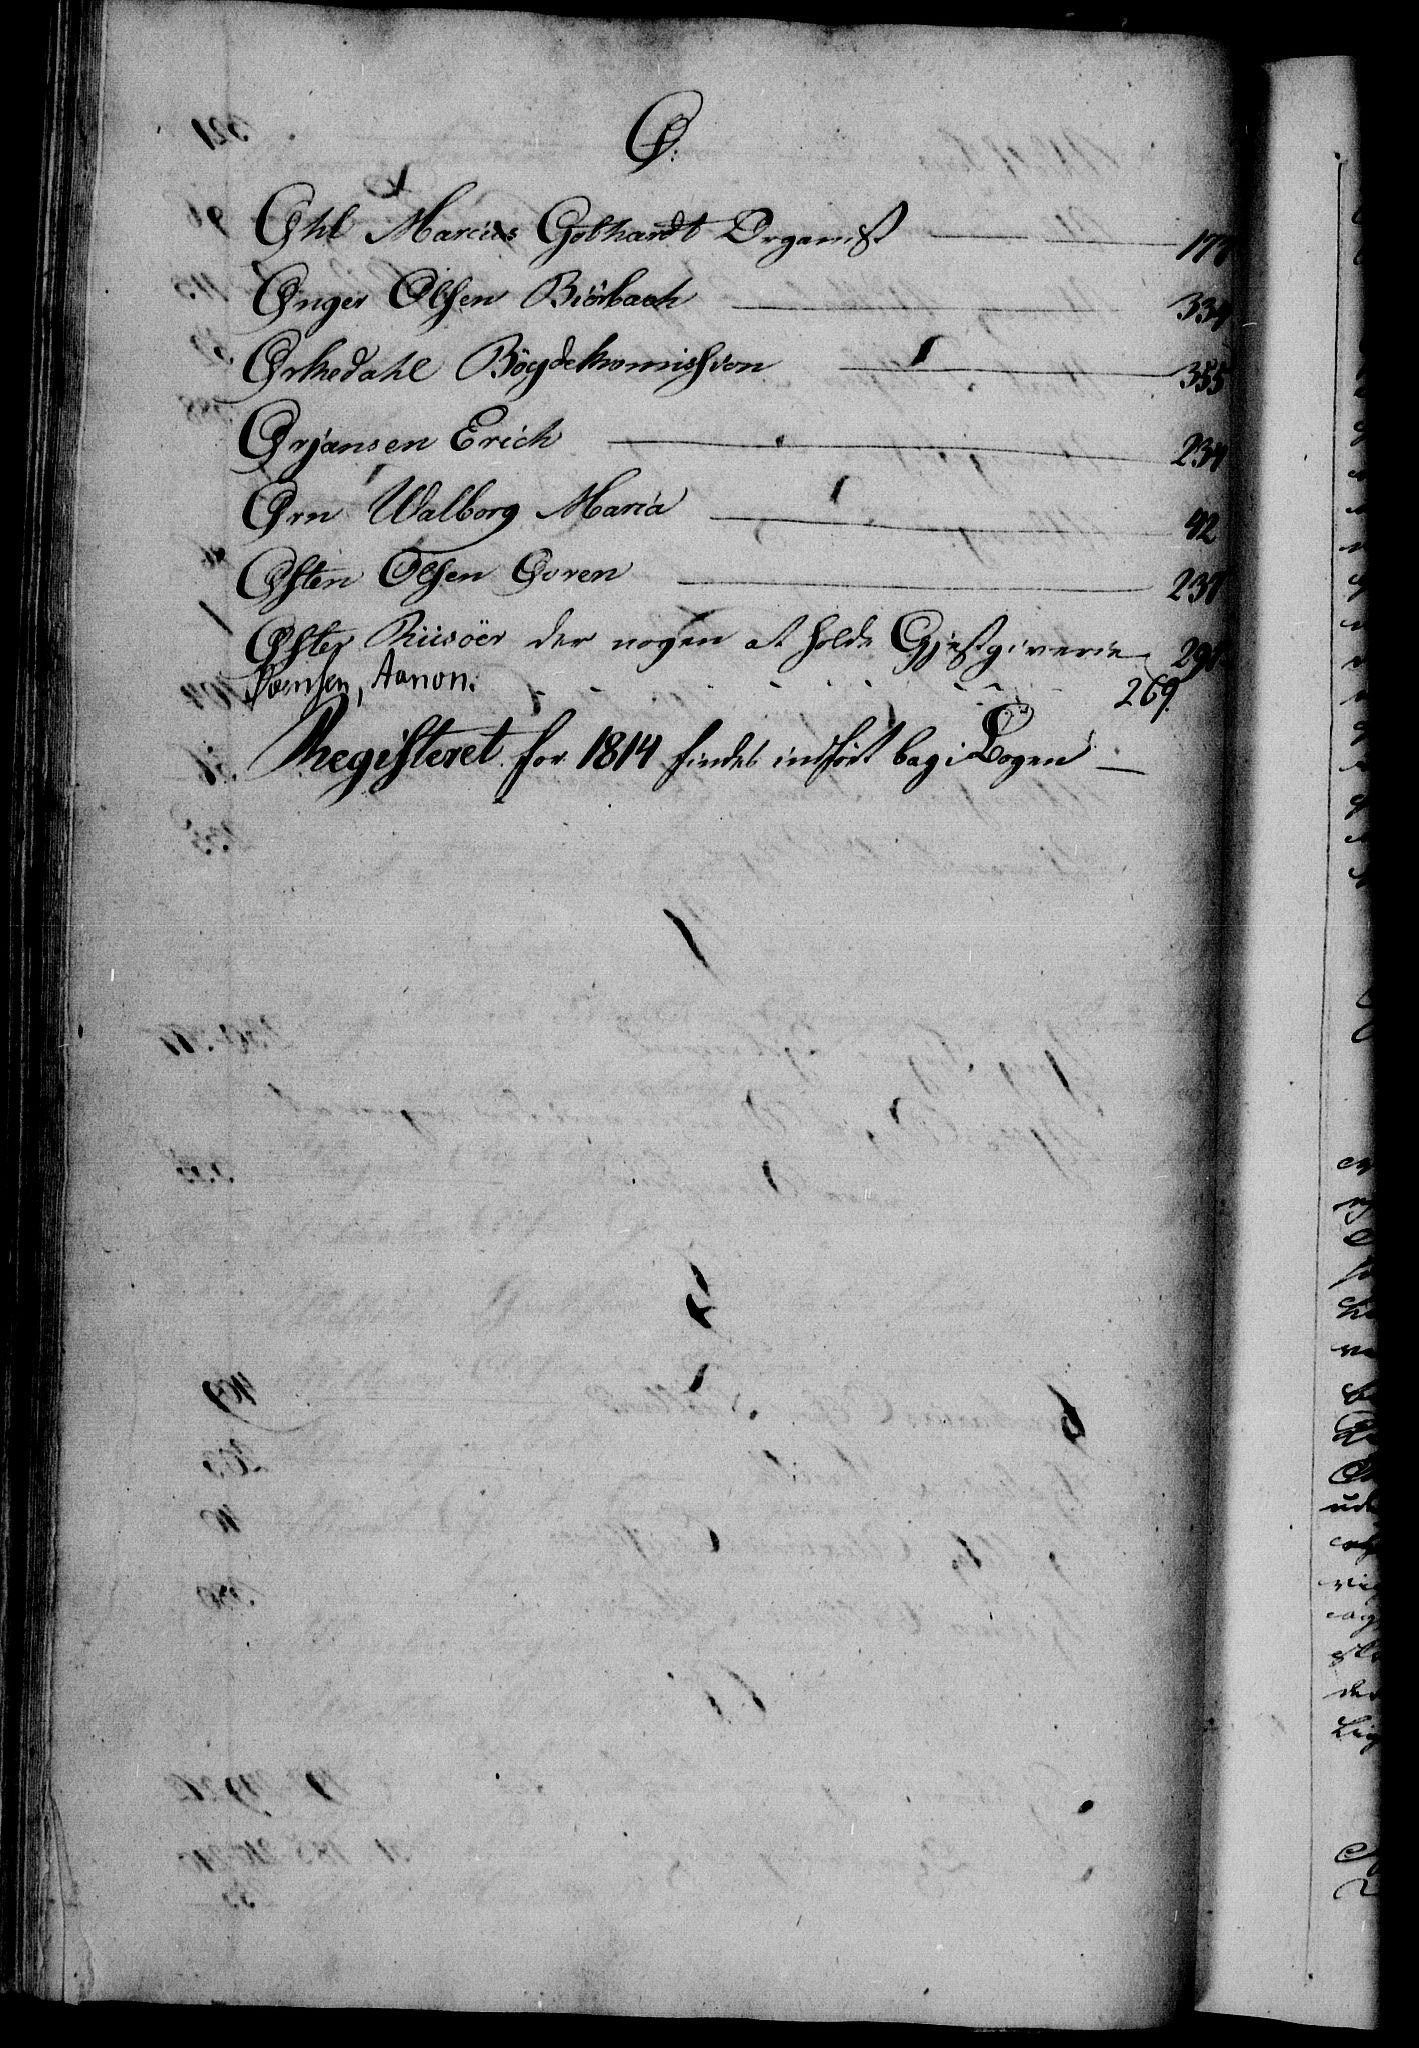 Ø:
Øhl Marcus Gebhardt Organist 177
Ønger Olsen Biörbach 334
Ørkedahl Böydekommission 355
Ørjansen Erich 234
Ørn Walborg Maria 42
Østen Olsen Goren 237
Øster Riisöer der nogen at holde Gjestgiverie 297
Aanon. 269.
Registeret for 1814 findes indfört bag i Bogen